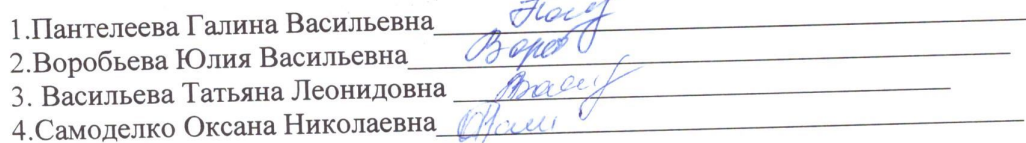 1.Пантелеева Галина Васильевна
2.Воробьева Юлия Васильевна
3. Васильева Татьяна Леонидовна
4.Самоделко Оксана Николаевна